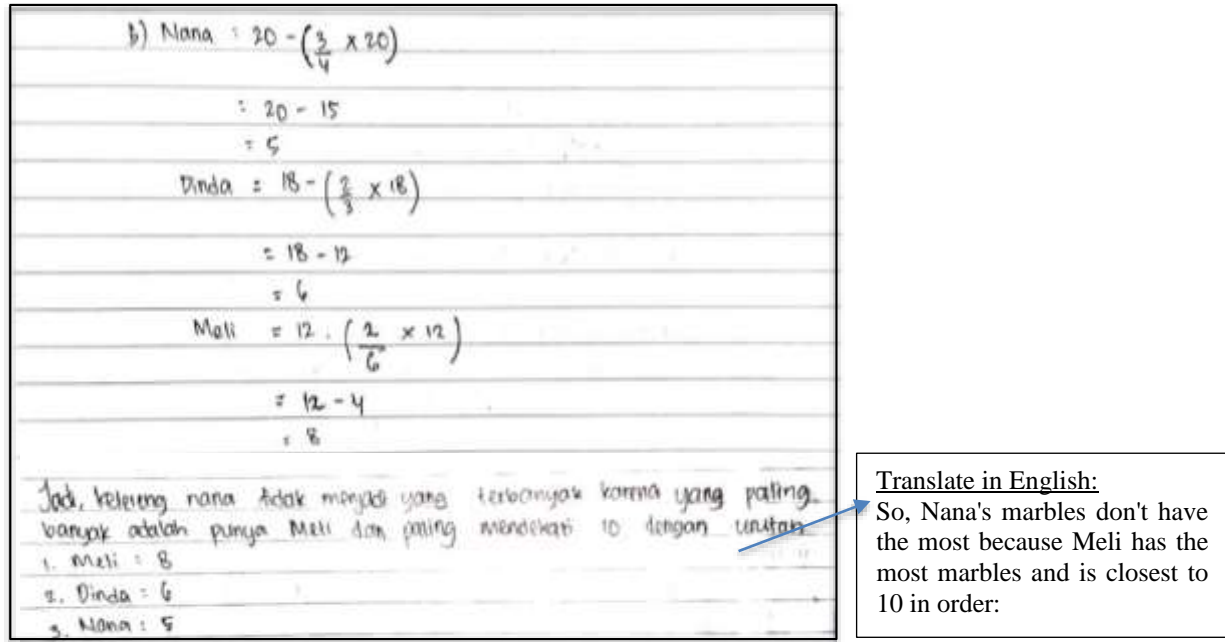 b) Nana : 20 - (3/4 x 20)
: 20 - 15
= 5
Dinda = 18 - (2/3 x 18)
= 18 - 12
= 6
Meli = 12 . (2/6 x 12)
= 12 - 4
= 8
Jadi, kelereng nana tidak menjadi yang terbanyak karena yang paling
banyak adalah punya Meli dan paling mendekati 10 dengan urutan
1. Meli : 8
2. Dinda = 6
3. Nana : 5
Translate in English:
So, Nana's marbles don't have
the most because Meli has the
most marbles and is closest to
10 in order: